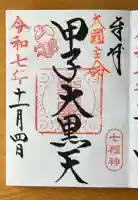 奉拝
大國主命
甲子大黒天
七福神
令和七年十一月四日